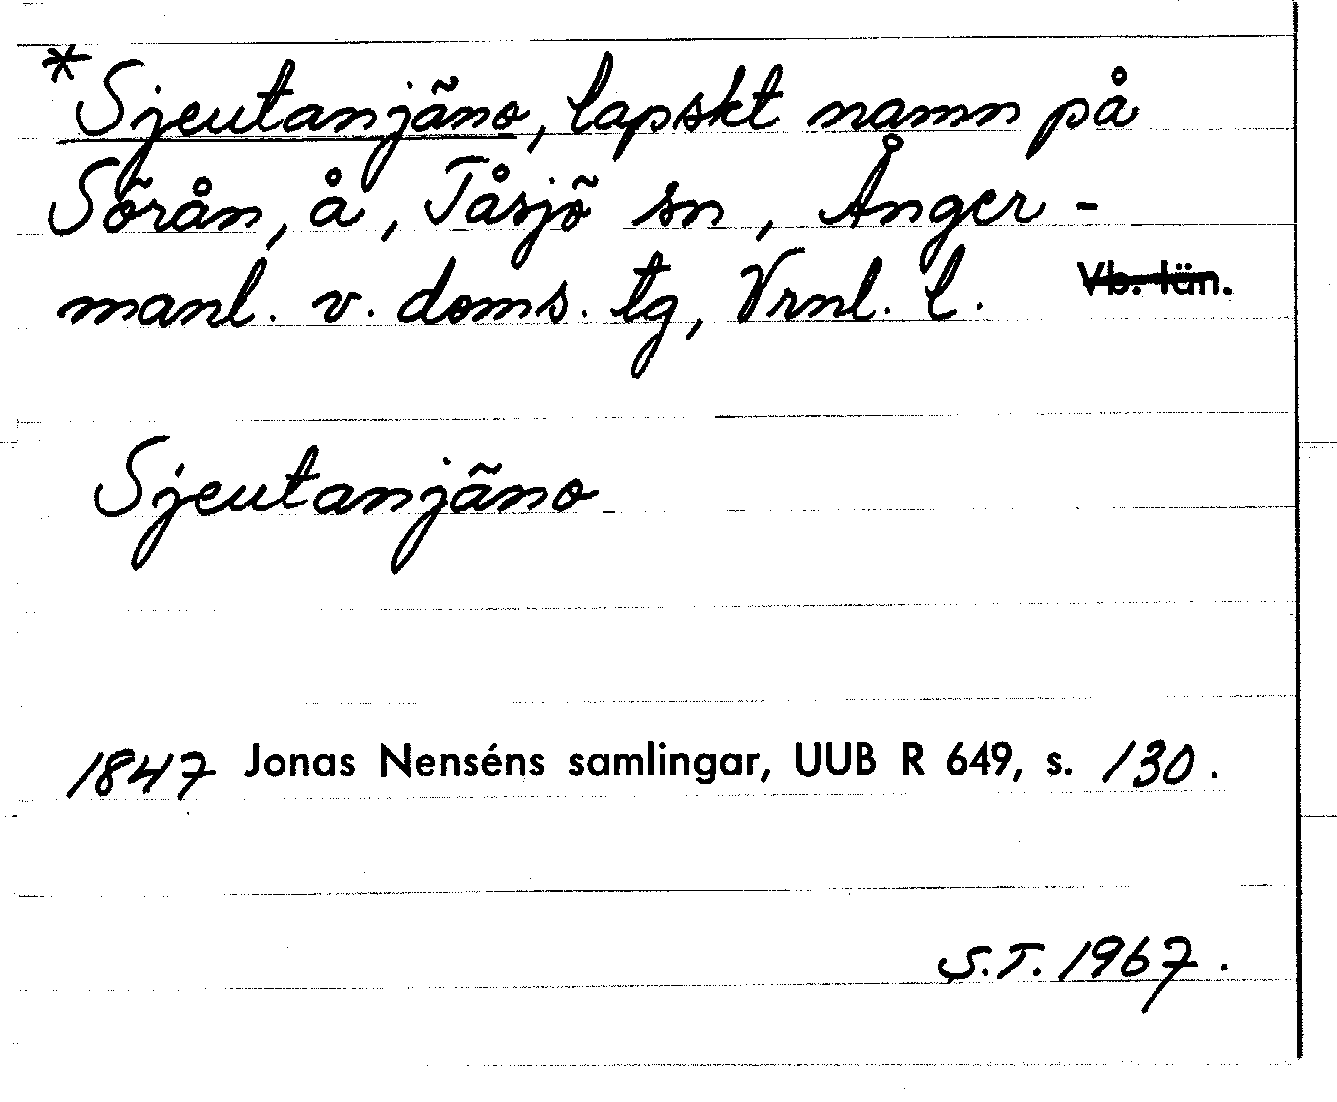 *Sjeutanjäno, lapskt namn på
Sörån, å, Tåsjö sn, Ånger-
manl. v. doms. tg, Vrnl. l. Vb. län.
Sjeutanjäno
1847 Jonas Nenséns samlingar, UUB R 649, s. 130.
S.T. 1967.